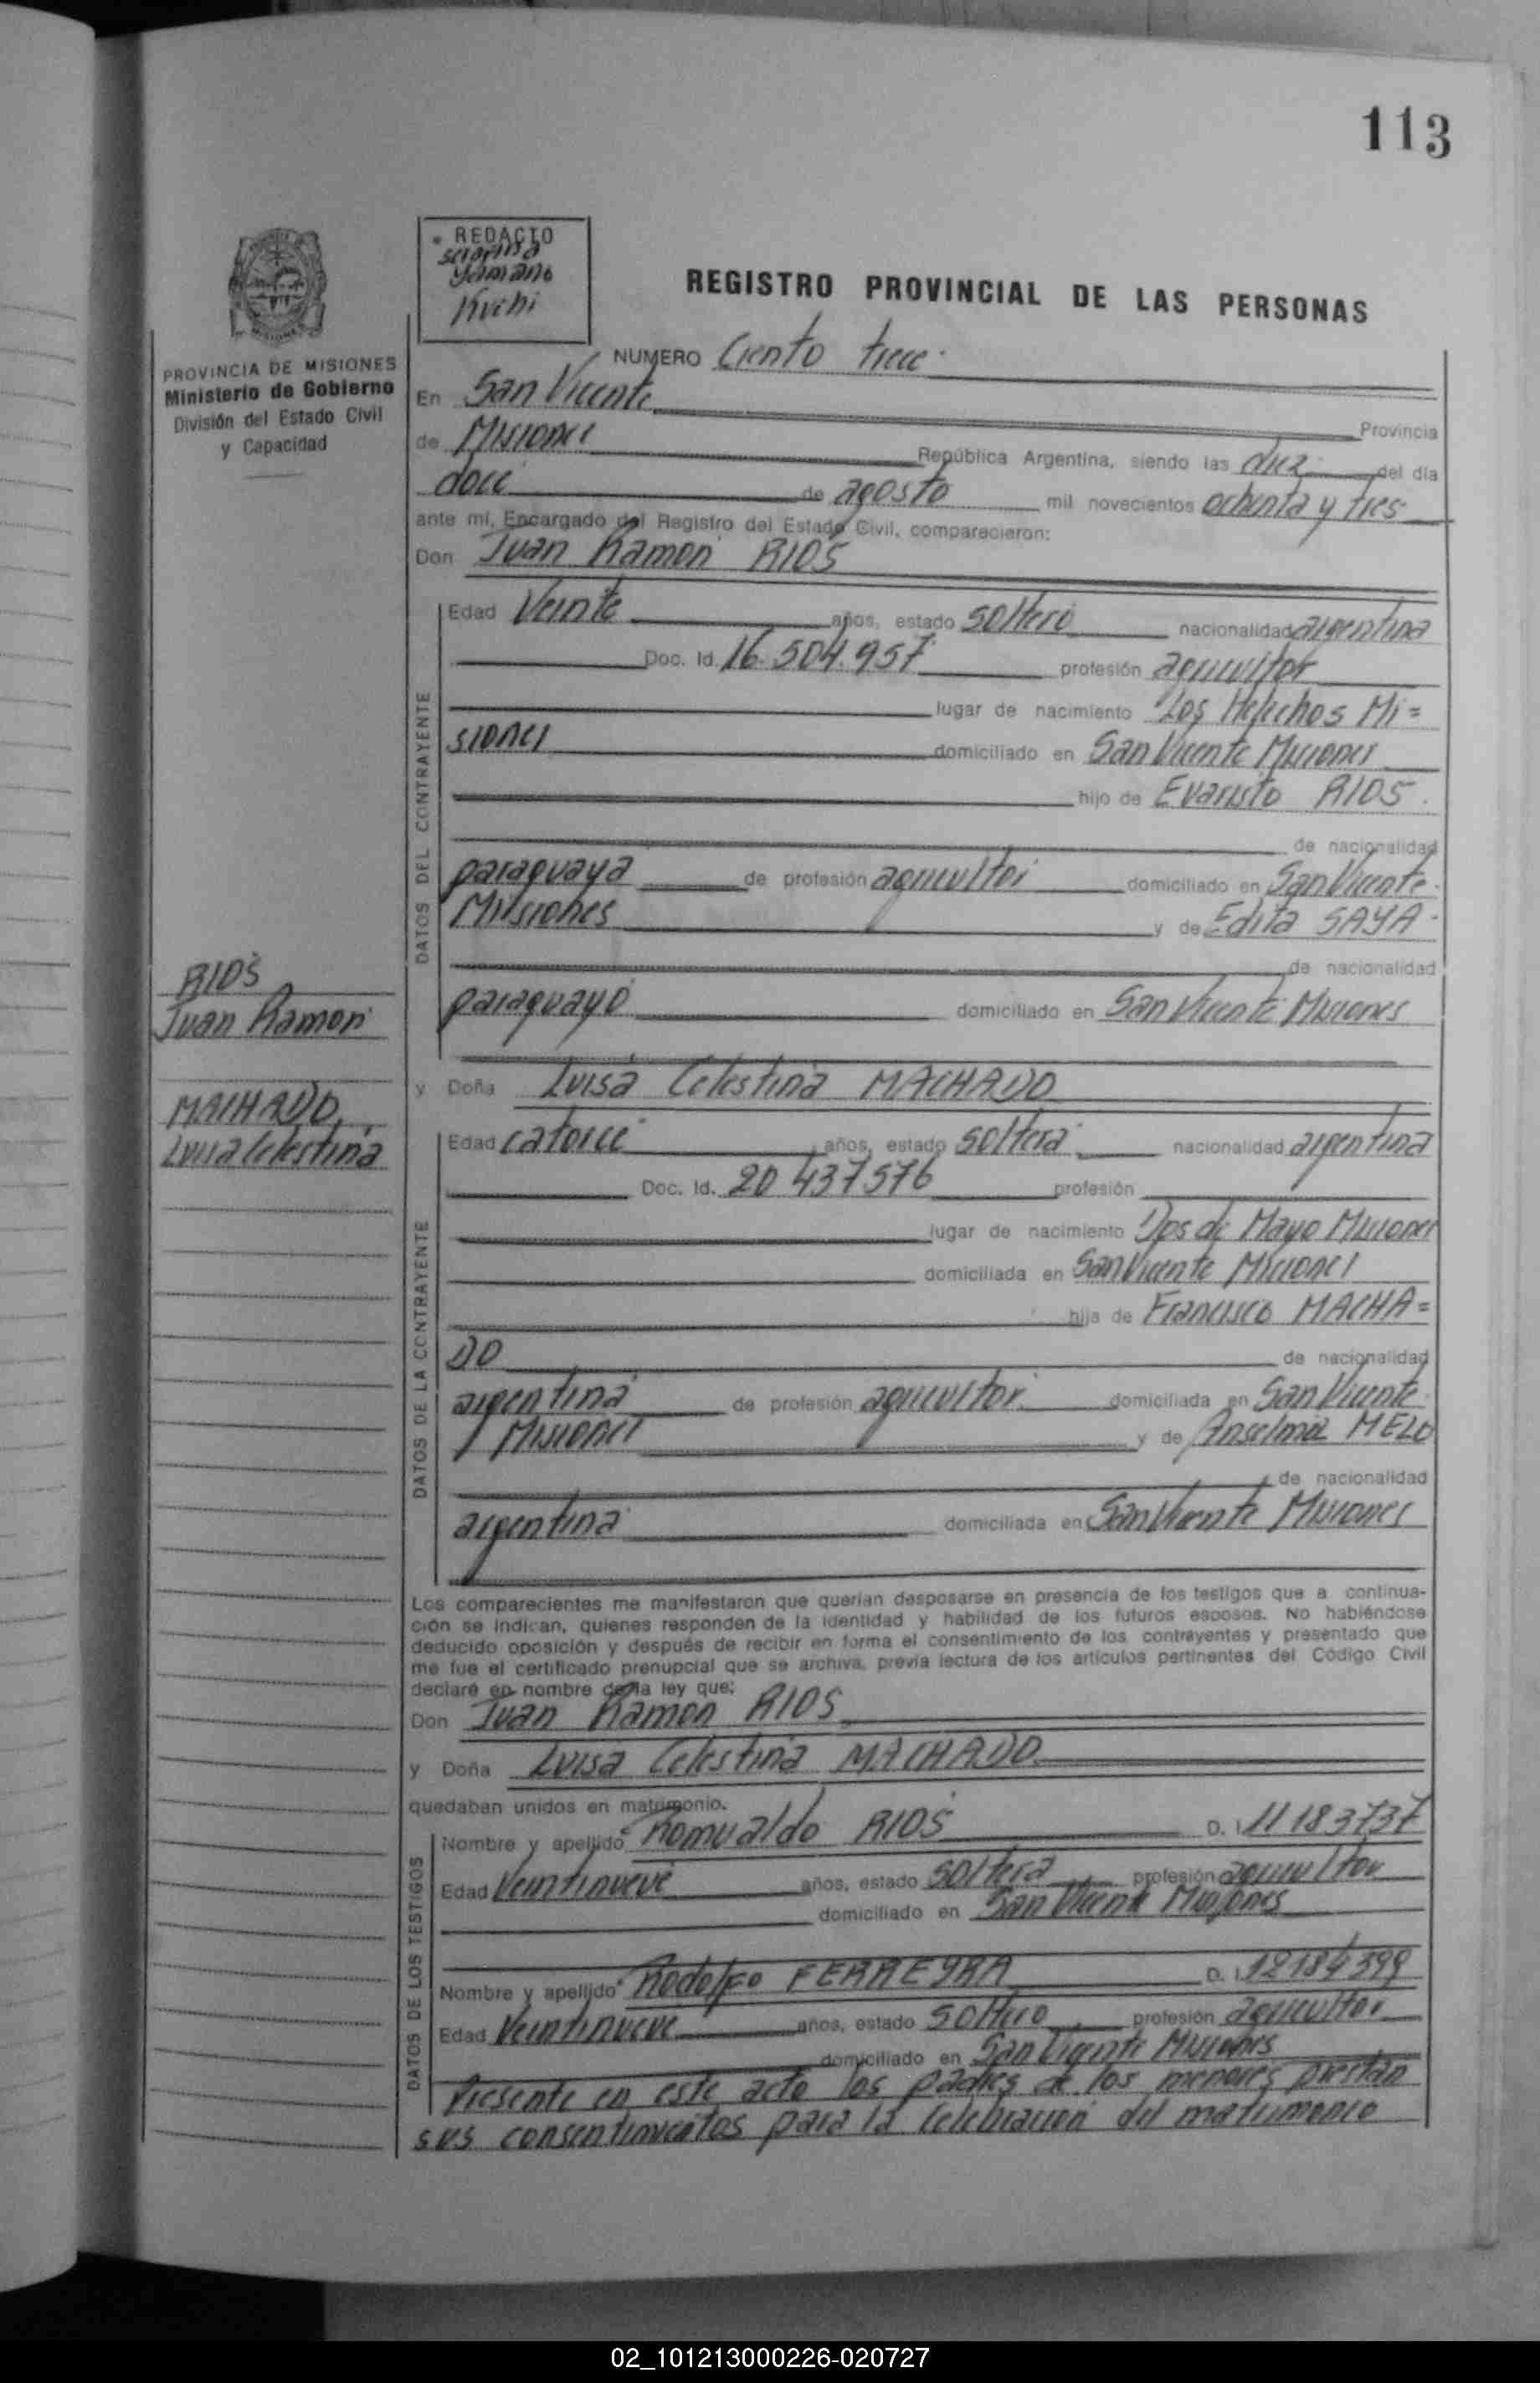 113
REDACTO
Yamano
Kuchi
REGISTRO PROVINCIAL DE LAS PERSONAS
PROVINCIA DE MISIONES
Ministerio de Gobierno
División del Estado Civil
y Capacidad
NUMERO Ciento trece
En San Vicente
Provincia
de Misiones República Argentina, siendo las diez del día
doce de agosto mil novecientos ochenta y tres
ante mí, Encargado del Registro del Estado Civil, comparecieron:
Don Juan Ramon RIOS
DATOS DEL CONTRAYENTE
Edad Veinte años, estado soltero nacionalidad argentina
Doc. Id. 16.504.957 profesión agricultor
lugar de nacimiento Los Helechos Mi=
siones domiciliado en San Vicente Misiones
hijo de Evaristo RIOS.
de nacionalidad
paraguaya de profesión agricultor domiciliado en San Vicente
Misiones y de Edita SAYA
de nacionalidad
paraguaya domiciliado en San Vicente Misiones
RIOS
Juan Ramon
MACHADO,
Luisa Celestina
y Doña Luisa Celestina MACHADO
DATOS DE LA CONTRAYENTE
Edad catorce años, estado soltera nacionalidad argentina
Doc. Id. 20 437576 profesión
lugar de nacimiento Dos de Mayo Misiones
domiciliada en San Vicente Misiones
hija de Francisco MACHA=
DO de nacionalidad
argentina de profesión agricultor domiciliada en San Vicente
Misiones y de Anselma MELO
de nacionalidad
argentina domiciliada en San Vicente Misiones
Los comparecientes me manifestaron que querían desposarse en presencia de los testigos que a continua-
ción se indican, quienes responden de la identidad y habilidad de los futuros esposos. No habiéndose
deducido oposición y después de recibir en forma el consentimiento de los contrayentes y presentado que
me fue el certificado prenupcial que se archiva, previa lectura de los artículos pertinentes del Código Civil
declaré en nombre de la ley que:
Don Juan Ramon RIOS
y Doña Luisa Celestina MACHADO
quedaban unidos en matrimonio.
DATOS DE LOS TESTIGOS
Nombre y apellido Romualdo RIOS D. I. 11183737
Edad Veintinueve años, estado soltera profesión agricultor
domiciliado en San Vicente Misiones
Nombre y apellido Rodolfo FERREYRA D. I. 12184399
Edad Veintinueve años, estado soltero profesión agricultor
domiciliado en San Vicente Misiones
Presente en este acto los padres de los menores prestan
sus consentimientos para la celebracion del matrimonio
02_101213000226-020727